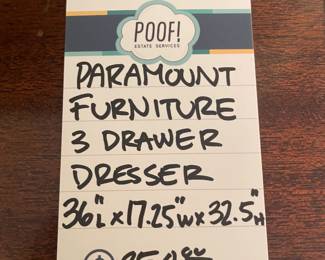 POOF!
ESTATE SERVICES
PARAMOUNT
FURNITURE
3 DRAWER
DRESSER
36"L x 17.25"W x 32.5"H